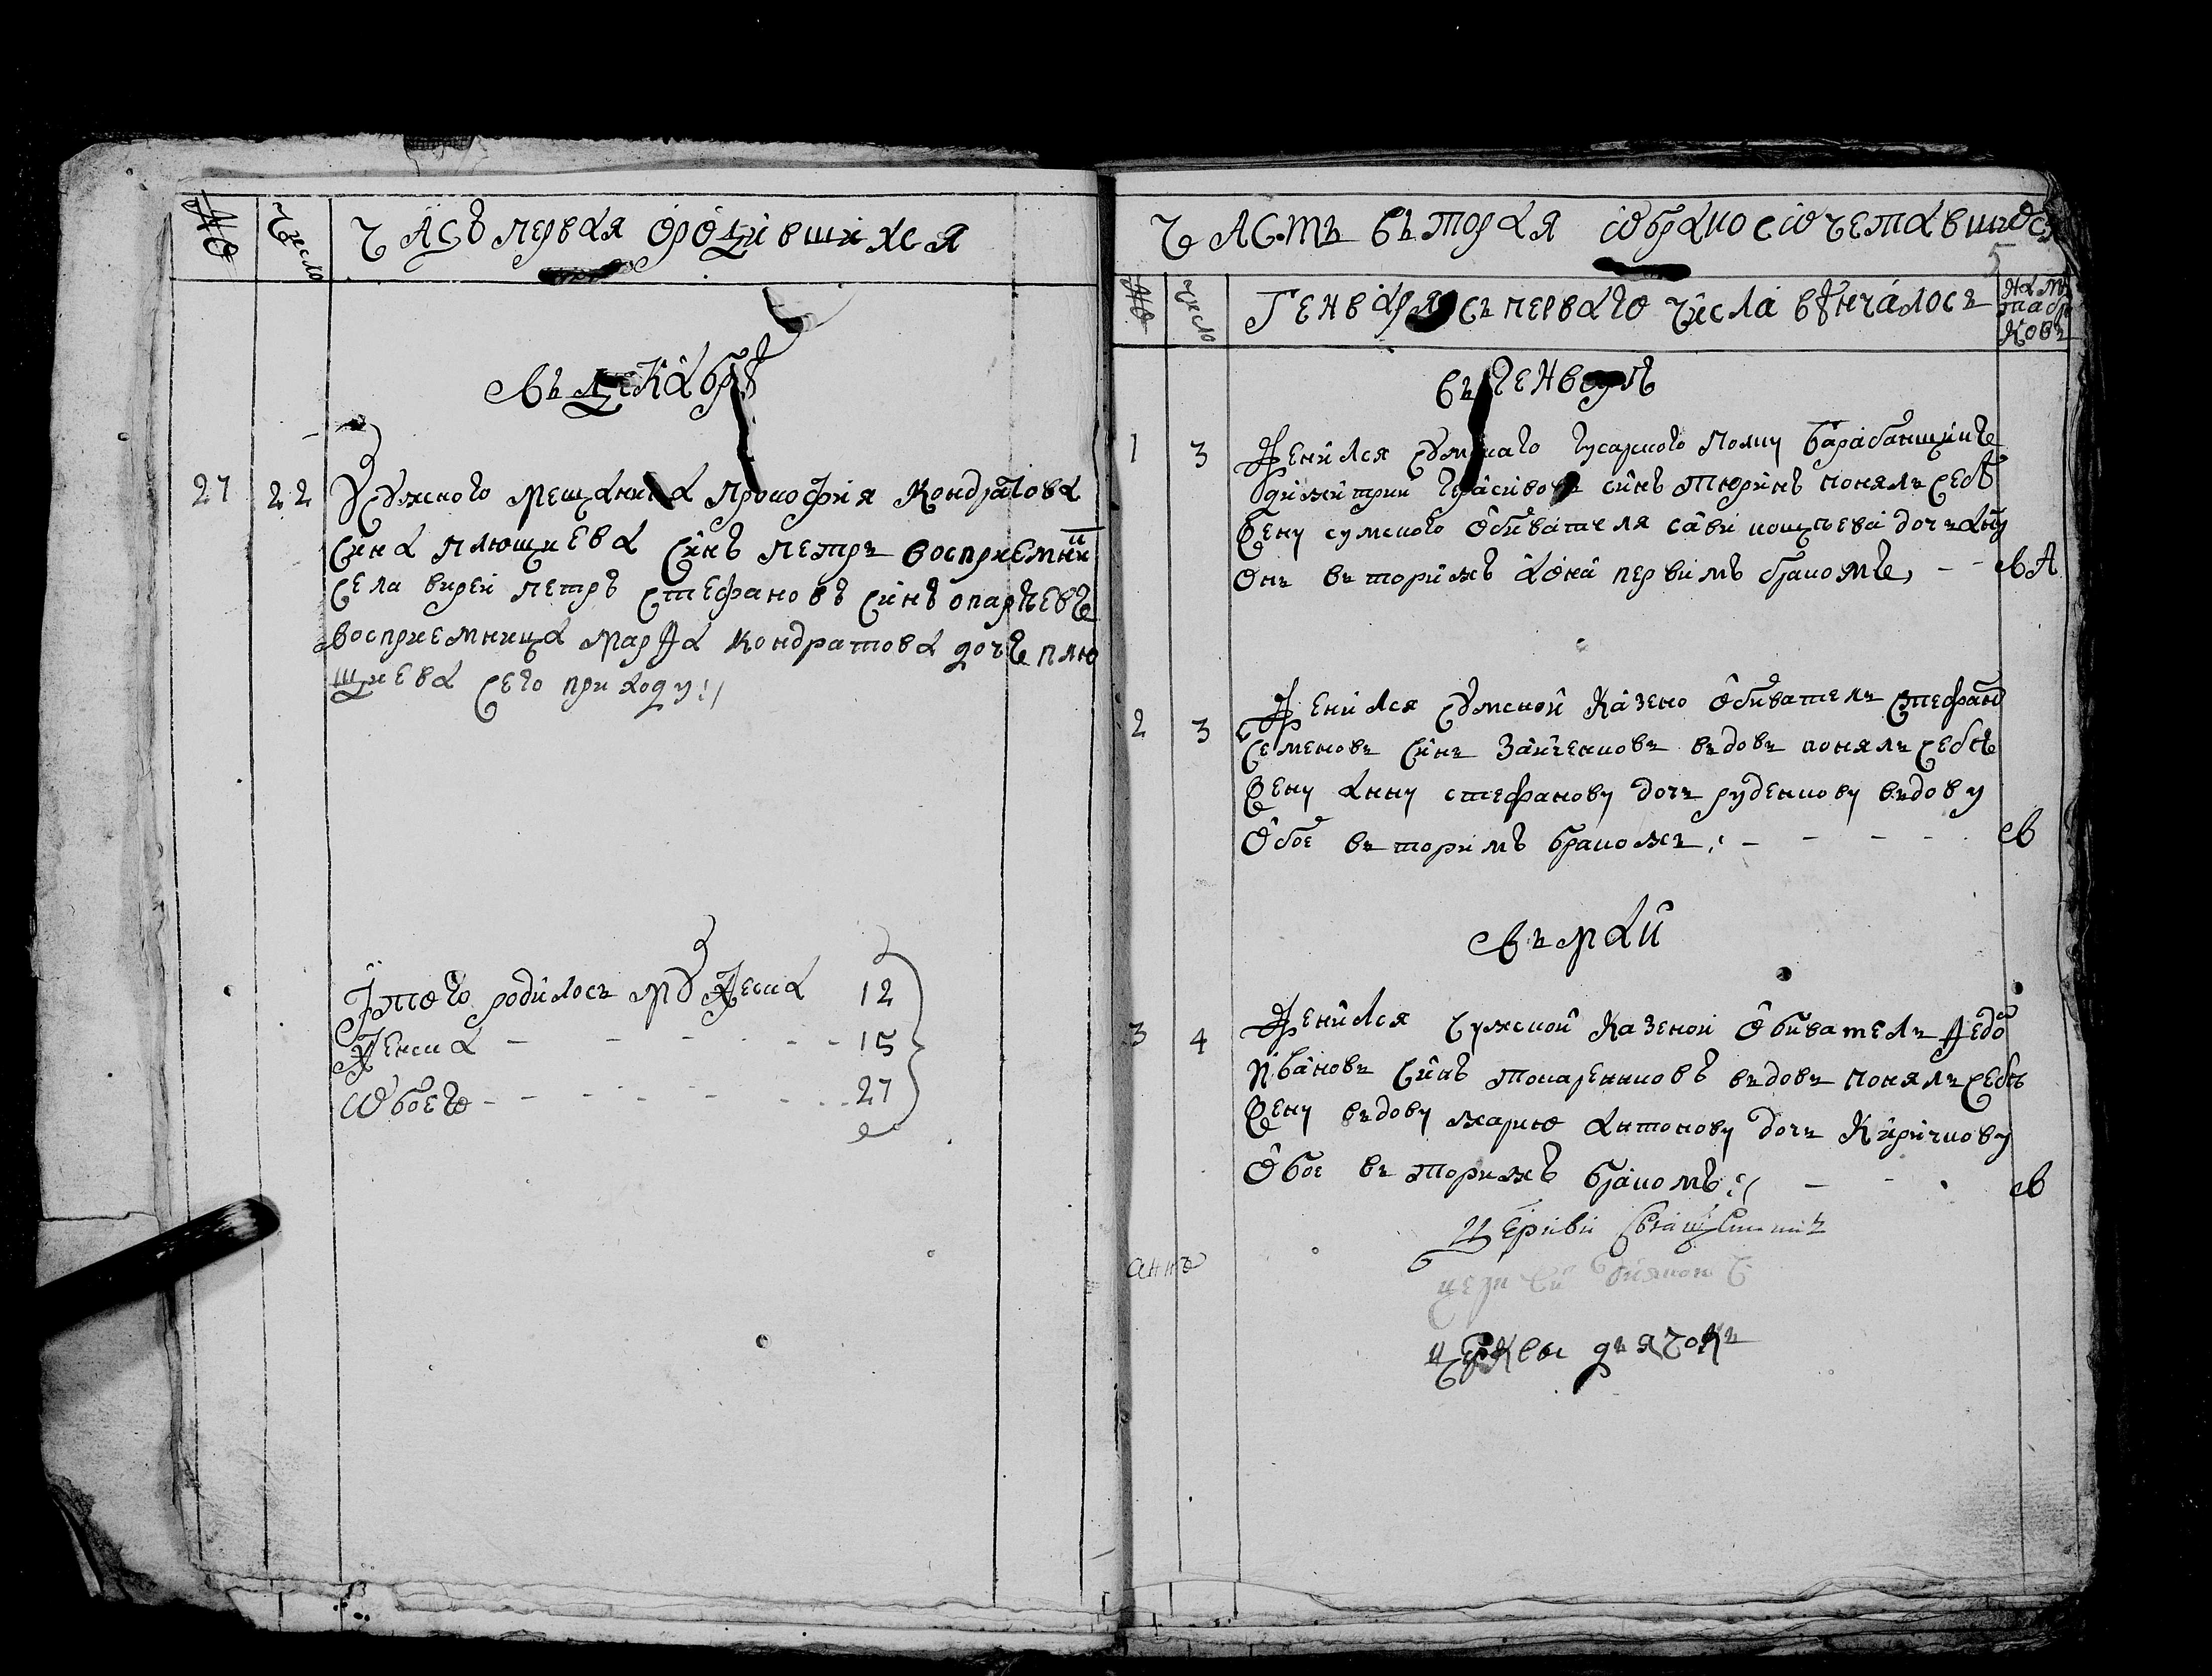 №
Число
Часть первая ѡродившихся
въ декабрѣ
27 22 У сумского мещанина Прокофия Кондратова
сина Плющиева синъ Петръ восприемни
села вирей Петръ Стефановъ синъ
восприемница Марѳа Кондратова дочъ Плю
щиева сего приходу
Итого родилось мужеска 12
женска 15
ѡбоего 27
Часть въторая ѡбракосѡчетавшихся
5
№
число
Генваря съ перваго числа вѣнчалось
въ генварѣ
1 3 Женился сумскаго гусарского полку барабанщикъ
димитрий синъ Тюринъ понялъ себѣ
жену сумского обивателя сави дочъ анну
онъ въторимъ а она первимъ бракомъ, вА
2 3 Женился сумской казено обиватель Стефанъ
Семеновъ синъ Заиченковъ въдовъ понялъ себѣ
жену анну стефанову дочъ руденкову въдову
обое въторимъ бракомъ, в
въ маи
3 4 Женился сумской казеной обиватель Ѳедо
Ивановъ синъ Токаренковъ въдовъ понялъ себѣ
жену въдову марию антонову дочъ Киричкову
обое въторимъ бракомъ в
Церкви священникъ
церкви
церкви дьячокъ